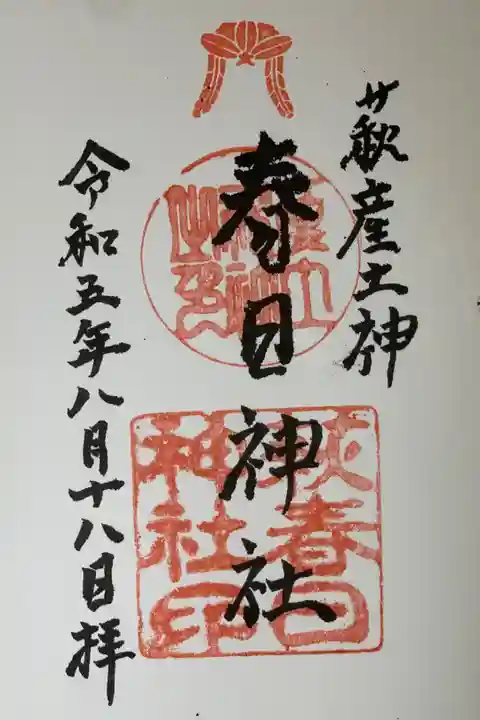 萩産土神
春日神社
令和五年八月十八日拝
萩春日
神社印